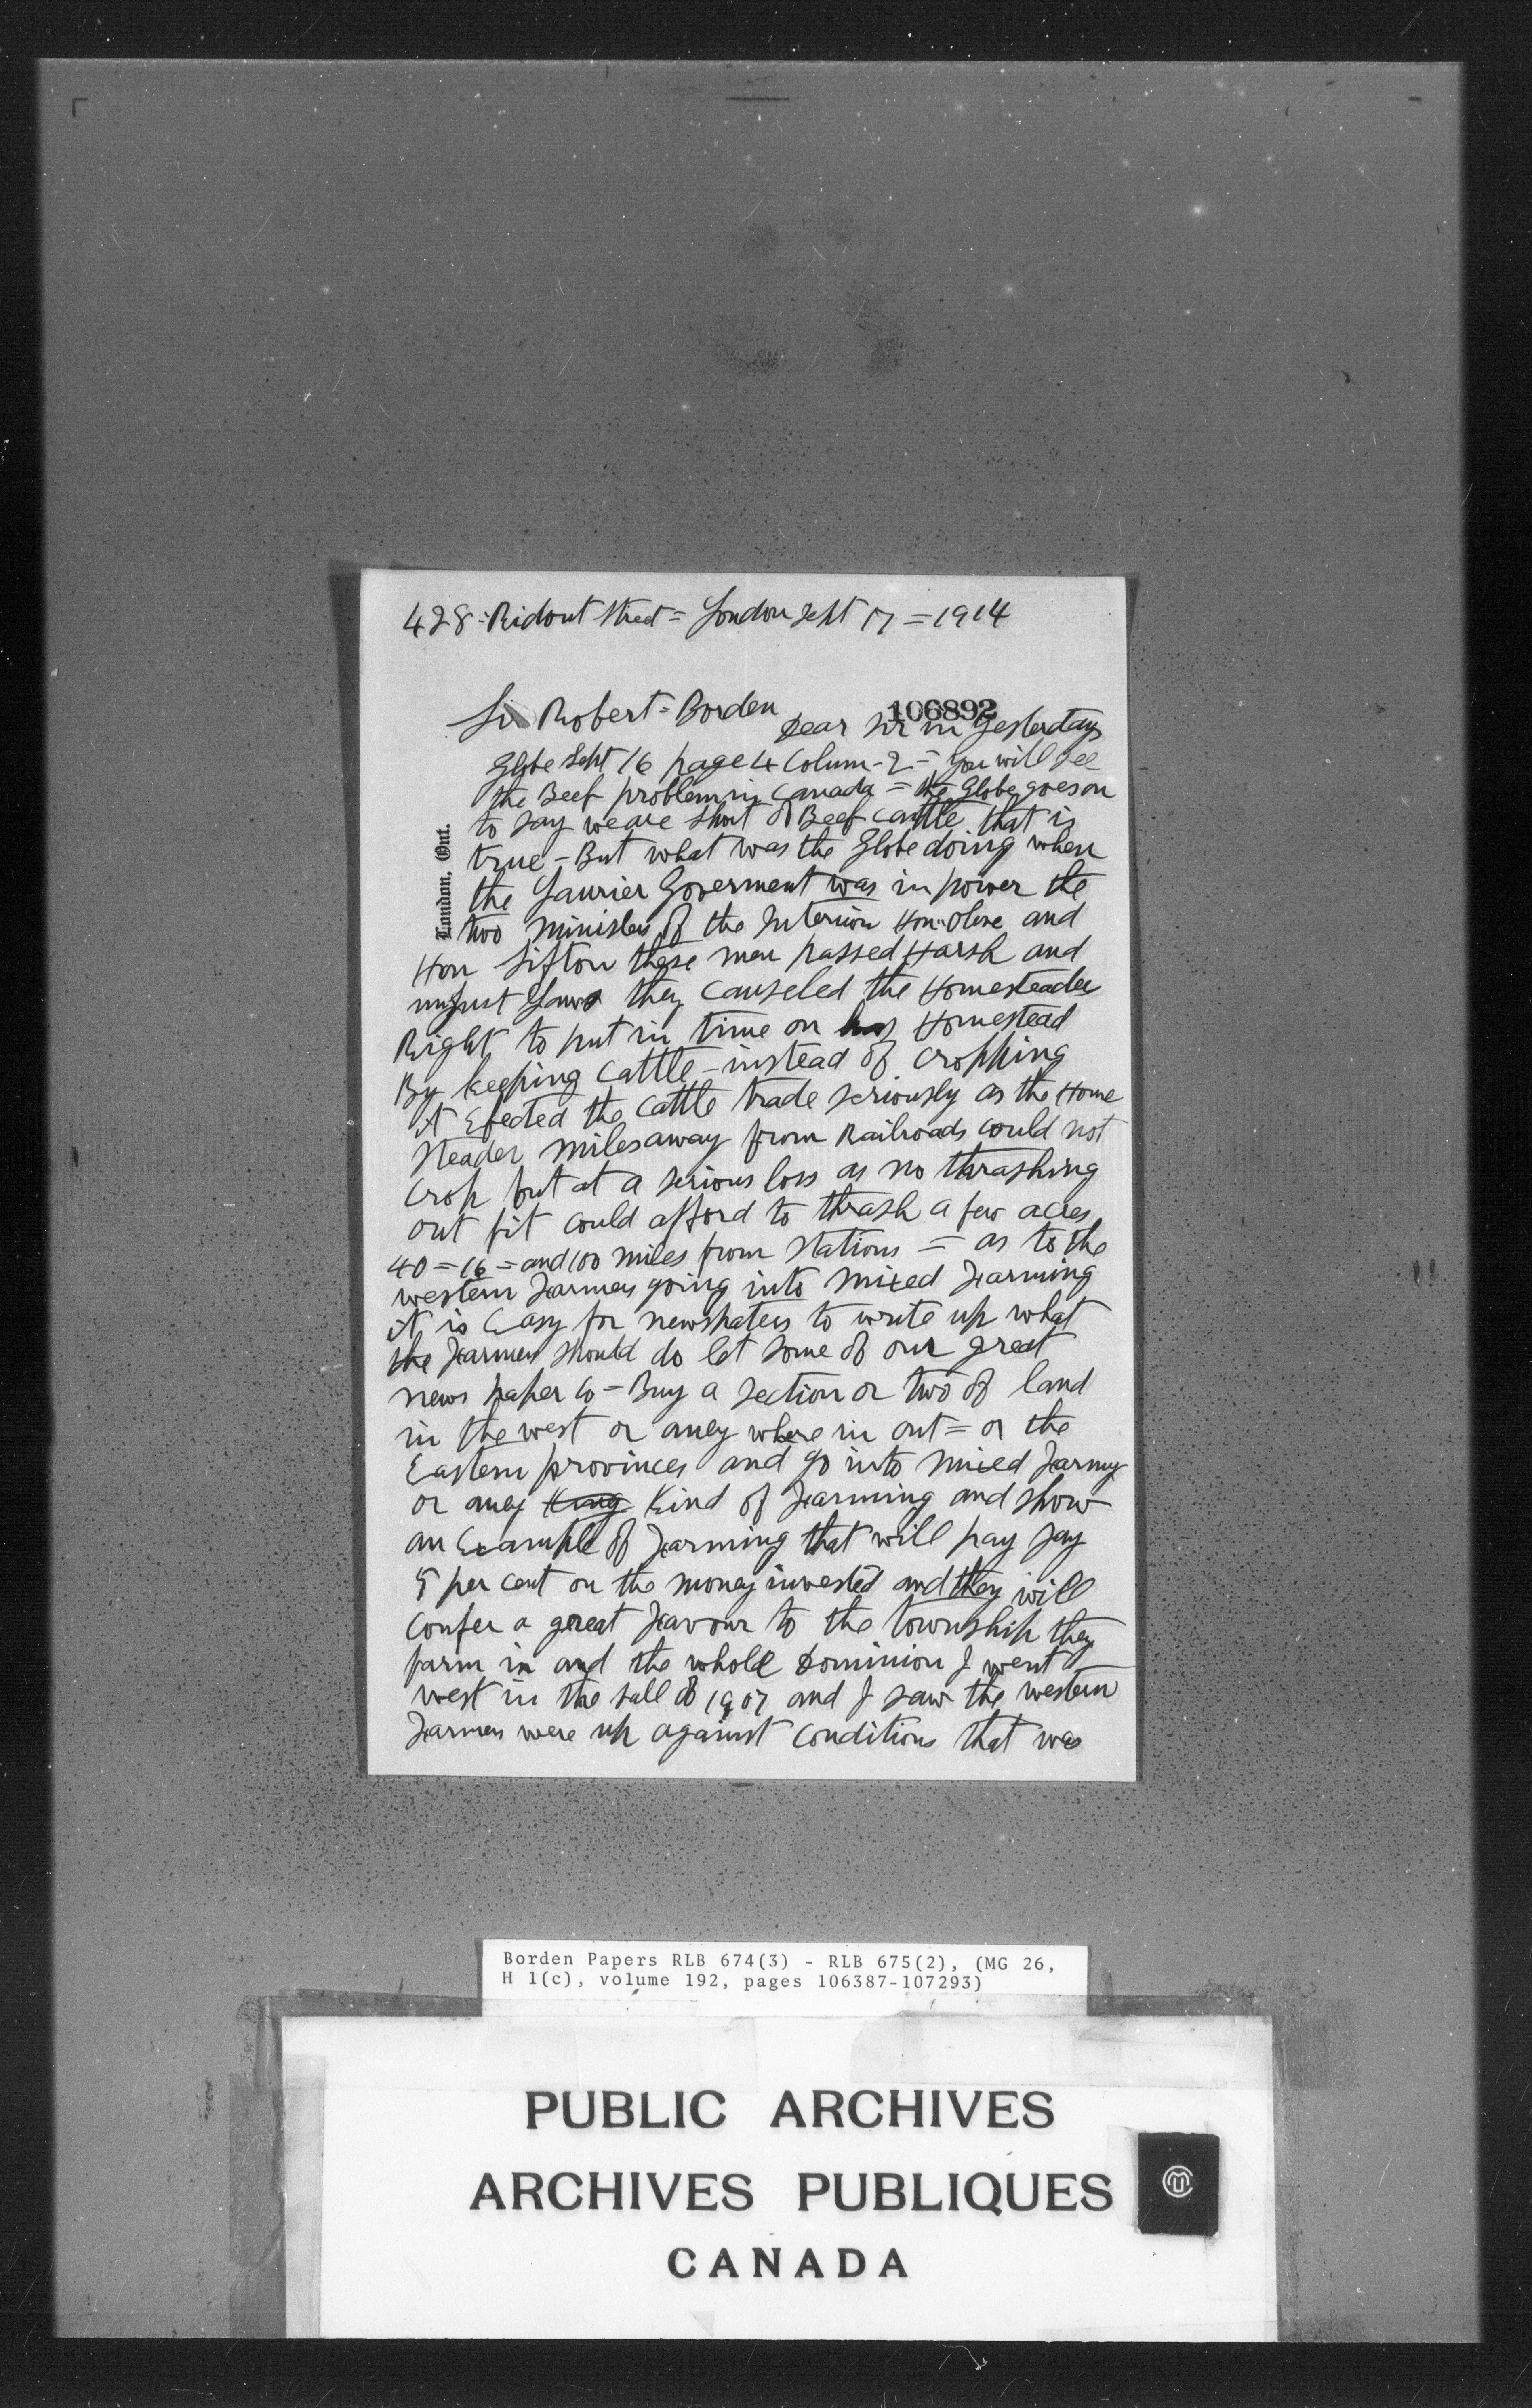 428 - Ridout Street = London Sept 17 = 1914
Sir Robert = Borden
106892
Dear Sir in Yesterdays
Globe Sept 16 page 4 Colum - 2 = you will see
the Beef problem in Canada = the Globe goes on
to say we are short of Beef cattle that is
true - But what was the Globe doing when
the Laurier Goverment was in power the
two Ministers of the Interior Hon. Olive and
Hon Sifton these men passed Harsh and
unjust Laws they Canseled the Homesteader
Right to put in time on his Homestead
By keeping Cattle - instead of Cropping
it Efected the Cattle trade seriously as the Home
steader miles away from Railroads could not
Crop but at a serious loss as no thrashing
out fit could afford to thrash a few acres
40 = 16 = and 100 miles from stations = as to the
western Farmers going into Mixed Farming
it is Easy for newspapers to write up what
the Farmers should do let some of our great
news paper Co = Buy a section or two of land
in the west or aney where in ont = or the
Eastern provinces and go into mixed Farming
or aney Kind of Farming and show
an Example of Farming that will pay say
5 per cent on the money invested and they will
Confer a great Favour to the township they
farm in and the whole Dominion I went
west in the fall of 1907 and I saw the western
Farmers were up against Conditions that was
London, Ont.
Borden Papers RLB 674(3) - RLB 675(2), (MG 26,
H 1(c), volume 192, pages 106387-107293)
PUBLIC ARCHIVES
ARCHIVES PUBLIQUES
CANADA